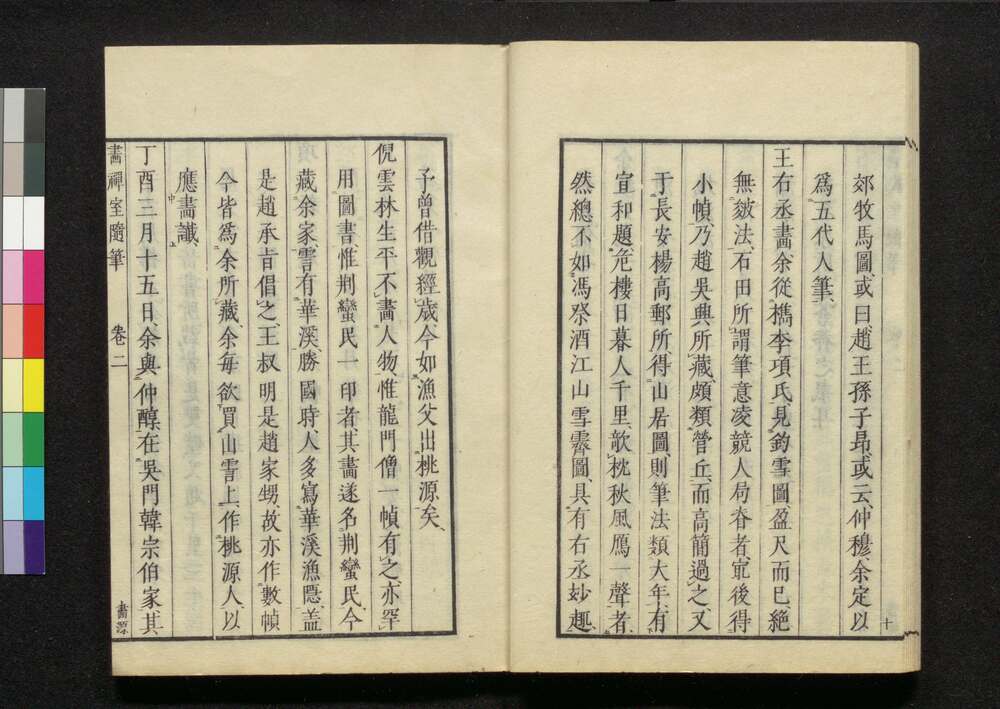 郊牧馬圖、或曰趙王孫子昂、或云、仲穆、余定以
爲五代人筆、
王右丞畫、余從檇李項氏、見釣雪圖盈尺而已、絕
無皴法、石田所謂筆意凌競人局脊者、寂後得
小幀、乃趙吳興所藏、頗類營丘、而高簡過之、又
于長安楊高郵所、得山居圖、則筆法類大年、有
宣和題、危樓日暮人千里、欹枕秋風鴈一聲者、
然總不如馮祭酒江山雪霽圖、具有右丞妙趣、
十
予曾借觀經歲、今如漁父出桃源矣、
倪雲林生平不畫人物、惟龍門僧一幀有之、亦罕
用圖書、惟荆蠻民一印者、其畫遂名荆蠻民、今
藏余家、霅有華溪、勝國時、人多寫華溪漁隱、盖
是趙承旨倡之、王叔明是趙家甥、故亦作數幀
今皆爲余所藏、余每欲買山霅上作桃源人、以
應畫讖、
丁酉三月十五日、余與仲醇在吳門韓宗伯家、其
畫禪室隨筆 卷二 畫源